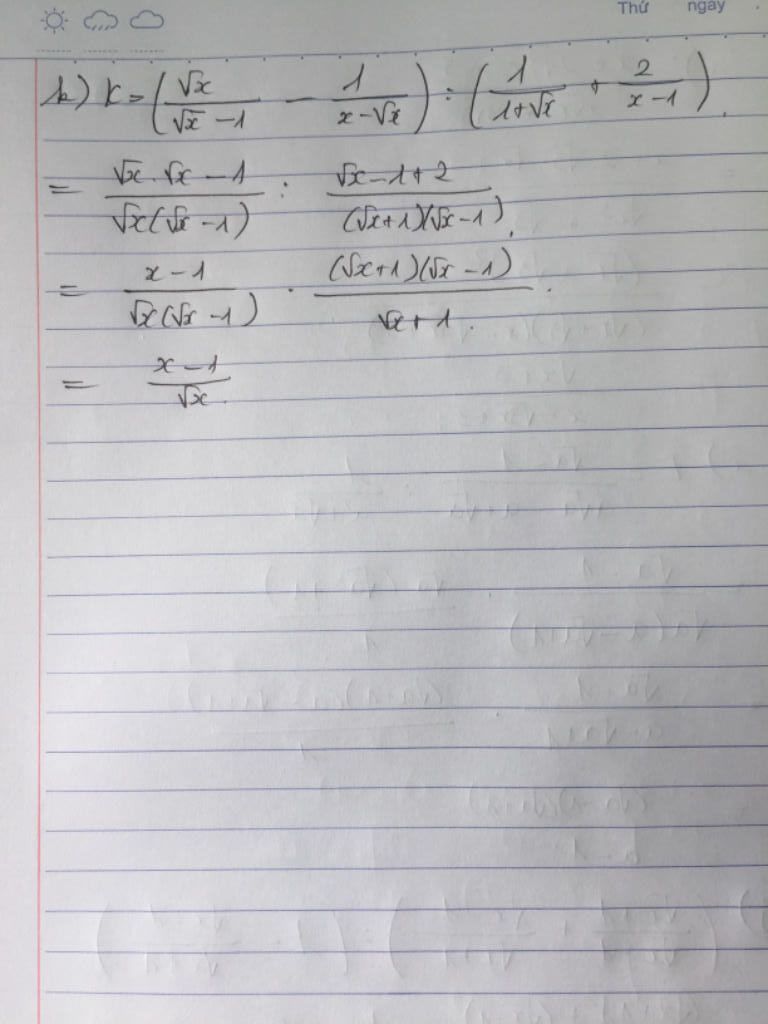 Thứ ngày
k) K = (√x/(√x − 1) − 1/(x − √x)) : (1/(1+√x) + 2/(x − 1)).
= (√x.√x − 1)/(√x(√x − 1)) : (√x − 1 + 2)/((√x+1)(√x − 1)).
= (x − 1)/(√x(√x − 1)) . ((√x+1)(√x − 1))/(√x + 1).
= (x − 1)/√x.